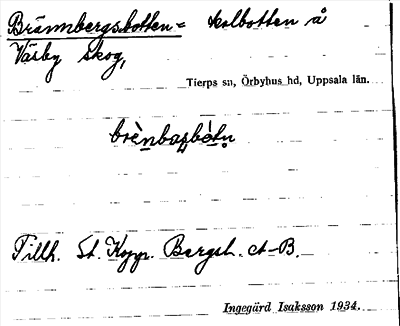 Brännbergsbotten = kolbotten å
Väsby skog,
Tierps sn, Örbyhus hd, Uppsala län.
Tillh. St. Kopp. Bergsl. A-B.
Ingegärd Isaksson 1934.